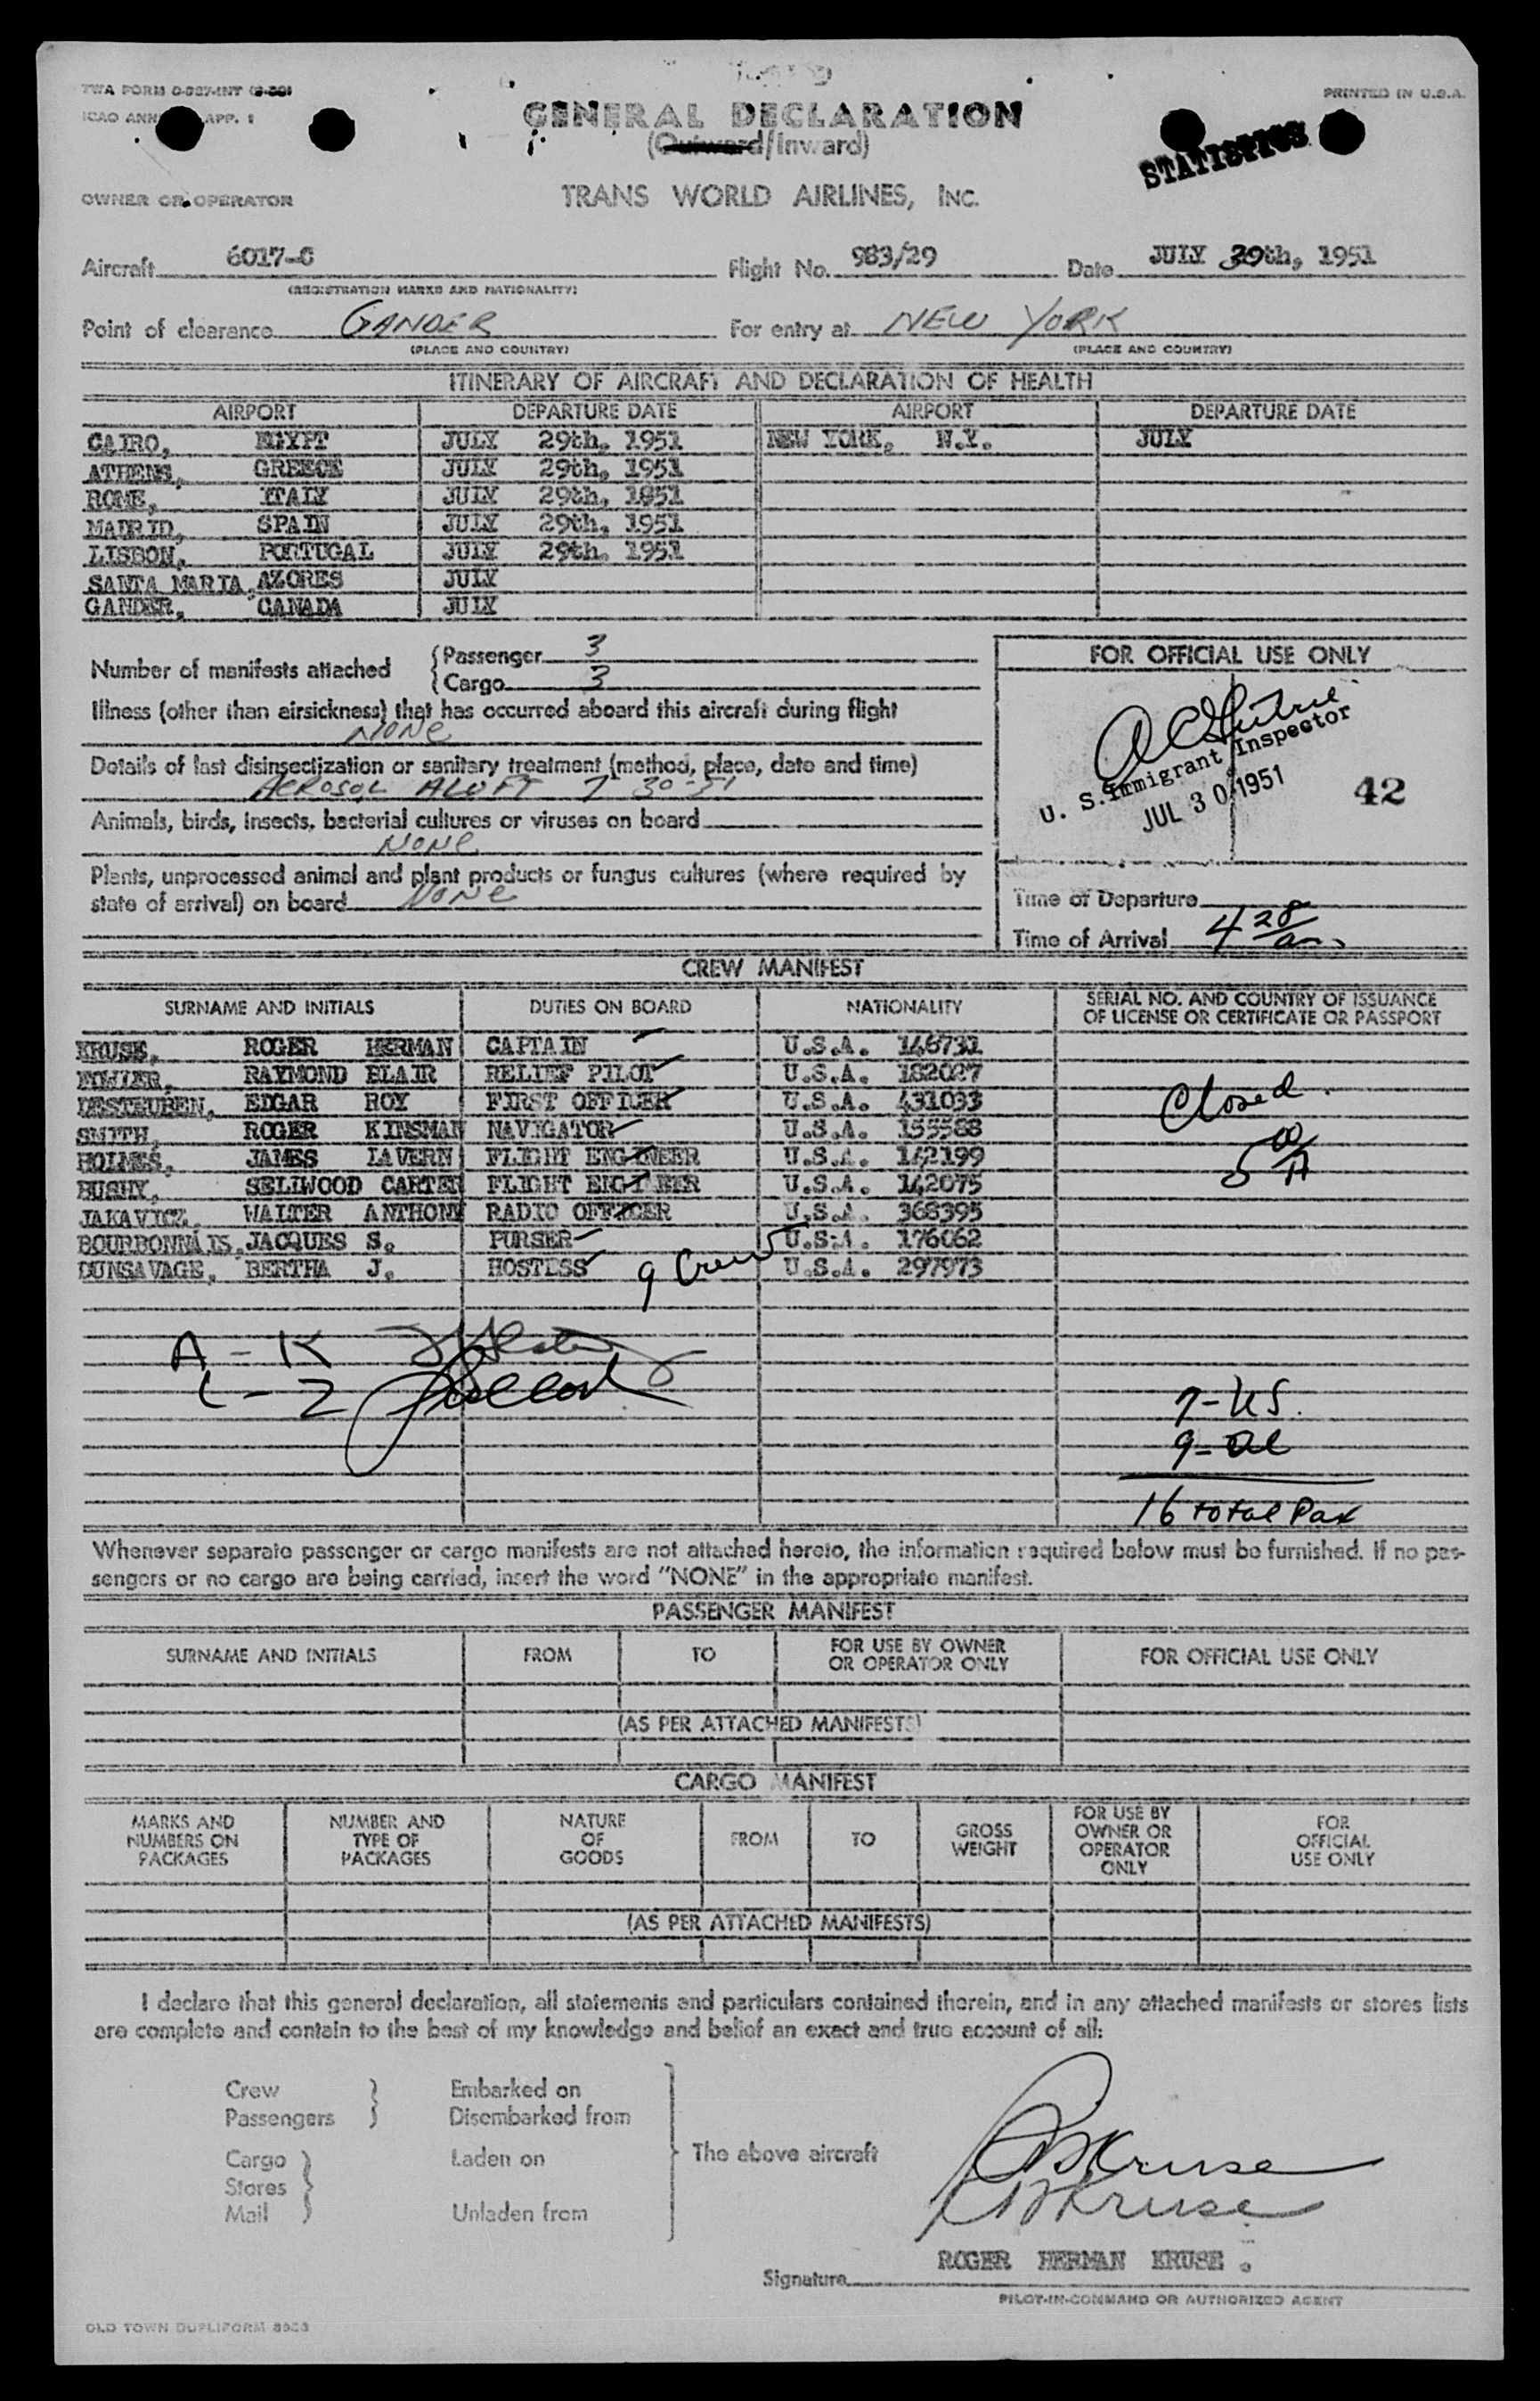 TWA FORM O-937-INT
PRINTED IN U.S.A.
ICAO APP. 1
GENERAL DECLARATION
(Outward/Inward)
STATISTICS
OWNER OR OPERATOR
TRANS WORLD AIRLINES, INC.
Aircraft 6017-C Flight No. 983/29 Date JULY 30th, 1951
(REGISTRATION MARKS AND NATIONALITY)
Point of clearance GANDER For entry at NEW YORK
(PLACE AND COUNTRY) (PLACE AND COUNTRY)
ITINERARY OF AIRCRAFT AND DECLARATION OF HEALTH
AIRPORT DEPARTURE DATE AIRPORT DEPARTURE DATE
CAIRO, EGYPT JULY 29th, 1951 NEW YORK, N.Y. JULY
ATHENS, GREECE JULY 29th, 1951
ROME, ITALY JULY 29th, 1951
MADRID, SPAIN JULY 29th, 1951
LISBON, PORTUGAL JULY 29th, 1951
SANTA MARIA, AZORES JULY
GANDER, CANADA JULY
Number of manifests attached
Passenger 3
Cargo 3
FOR OFFICIAL USE ONLY
Illness (other than airsickness) that has occurred aboard this aircraft during flight
NONE
Details of last disinsectization or sanitary treatment (method, place, date and time)
AEROSOL ALOFT 7 30-51
Animals, birds, insects, bacterial cultures or viruses on board
NONE
Plants, unprocessed animal and plant products or fungus cultures (where required by
state of arrival) on board NONE
U. S. Immigrant Inspector
JUL 30 1951
42
Time of Departure
Time of Arrival 4 28 am
CREW MANIFEST
SURNAME AND INITIALS DUTIES ON BOARD NATIONALITY SERIAL NO. AND COUNTRY OF ISSUANCE
OF LICENSE OR CERTIFICATE OR PASSPORT
KRUSE, ROGER HERMAN CAPTAIN U.S.A. 146731
FOWLER, RAYMOND BLAIR RELIEF PILOT U.S.A. 182027
DESTEUBEN, EDGAR ROY FIRST OFFICER U.S.A. 431033
SMITH, ROGER KINSMAN NAVIGATOR U.S.A. 155588
HOLMES, JAMES LAVERN FLIGHT ENGINEER U.S.A. 142199
BUSHY, SELLWOOD CARTER FLIGHT ENGINEER U.S.A. 142075
JAKAVICK, WALTER ANTHONY RADIO OFFICER U.S.A. 368395
BOURBONNAIS, JACQUES S. PURSER U.S.A. 176062
DUNSAVAGE, BERTHA J. HOSTESS U.S.A. 297973
Closed
5 00 A
9 Crew
A - K
L - Z
7-US.
9-al
16 total Pax
Whenever separate passenger or cargo manifests are not attached hereto, the information required below must be furnished. If no pas-
sengers or no cargo are being carried, insert the word "NONE" in the appropriate manifest.
PASSENGER MANIFEST
SURNAME AND INITIALS FROM TO FOR USE BY OWNER OR OPERATOR ONLY FOR OFFICIAL USE ONLY
(AS PER ATTACHED MANIFESTS)
CARGO MANIFEST
MARKS AND NUMBERS ON PACKAGES NUMBER AND TYPE OF PACKAGES NATURE OF GOODS FROM TO GROSS WEIGHT FOR USE BY OWNER OR OPERATOR ONLY FOR OFFICIAL USE ONLY
(AS PER ATTACHED MANIFESTS)
I declare that this general declaration, all statements and particulars contained therein, and in any attached manifests or stores lists
are complete and contain to the best of my knowledge and belief an exact and true account of all:
Crew Embarked on
Passengers Disembarked from
Cargo Laden on The above aircraft
Stores
Mail Unladen from
Kruse
Kruse
ROGER HERMAN KRUSE.
Signature
PILOT-IN-COMMAND OR AUTHORIZED AGENT
OLD TOWN DUPLIFORM